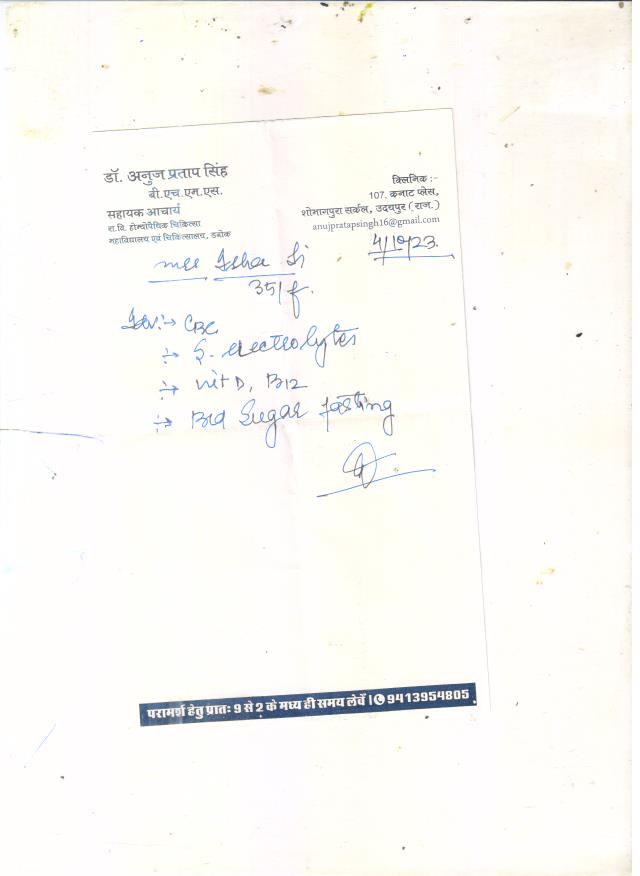 डॉ. अनुज प्रताप सिंह
बी.एच.एम.एस.
सहायक आचार्य
रा.वि. होम्योपैथिक चिकित्सा
महाविद्यालय एवं चिकित्सालय, डबोक
क्लिनिक :-
107, कनाट प्लेस,
शोभागपुरा सर्कल, उदयपुर ( राज. )
anujpratapsingh16@gmail.com
4/10/23
35/f
:→ CBC
:→ S. electrolytes
:→ vit D, B12
:→ Bld Sugar fasting
परामर्श हेतु प्रातः 9 से 2 के मध्य ही समय लेवें। 9413954805